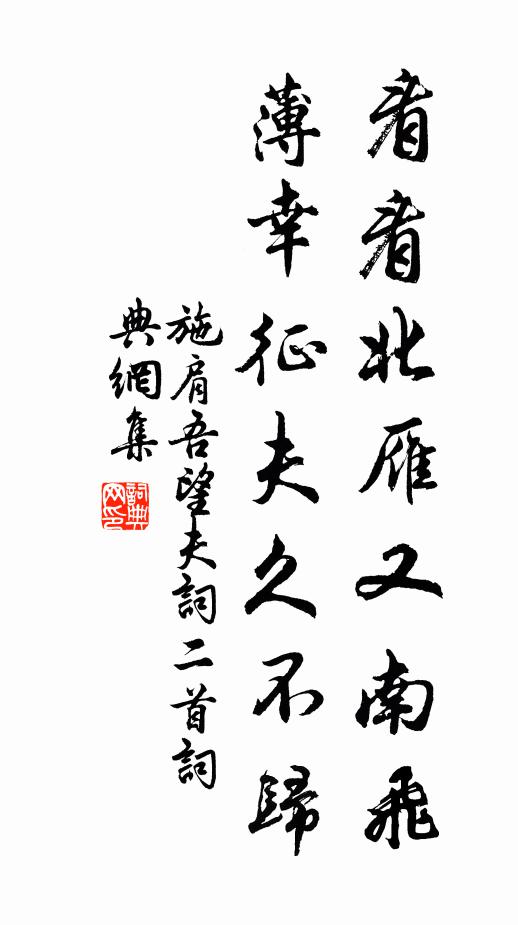 看看北雁又南飛
薄幸征夫久不歸
施肩吾望夫詞二首詞
典網集
詞典网印